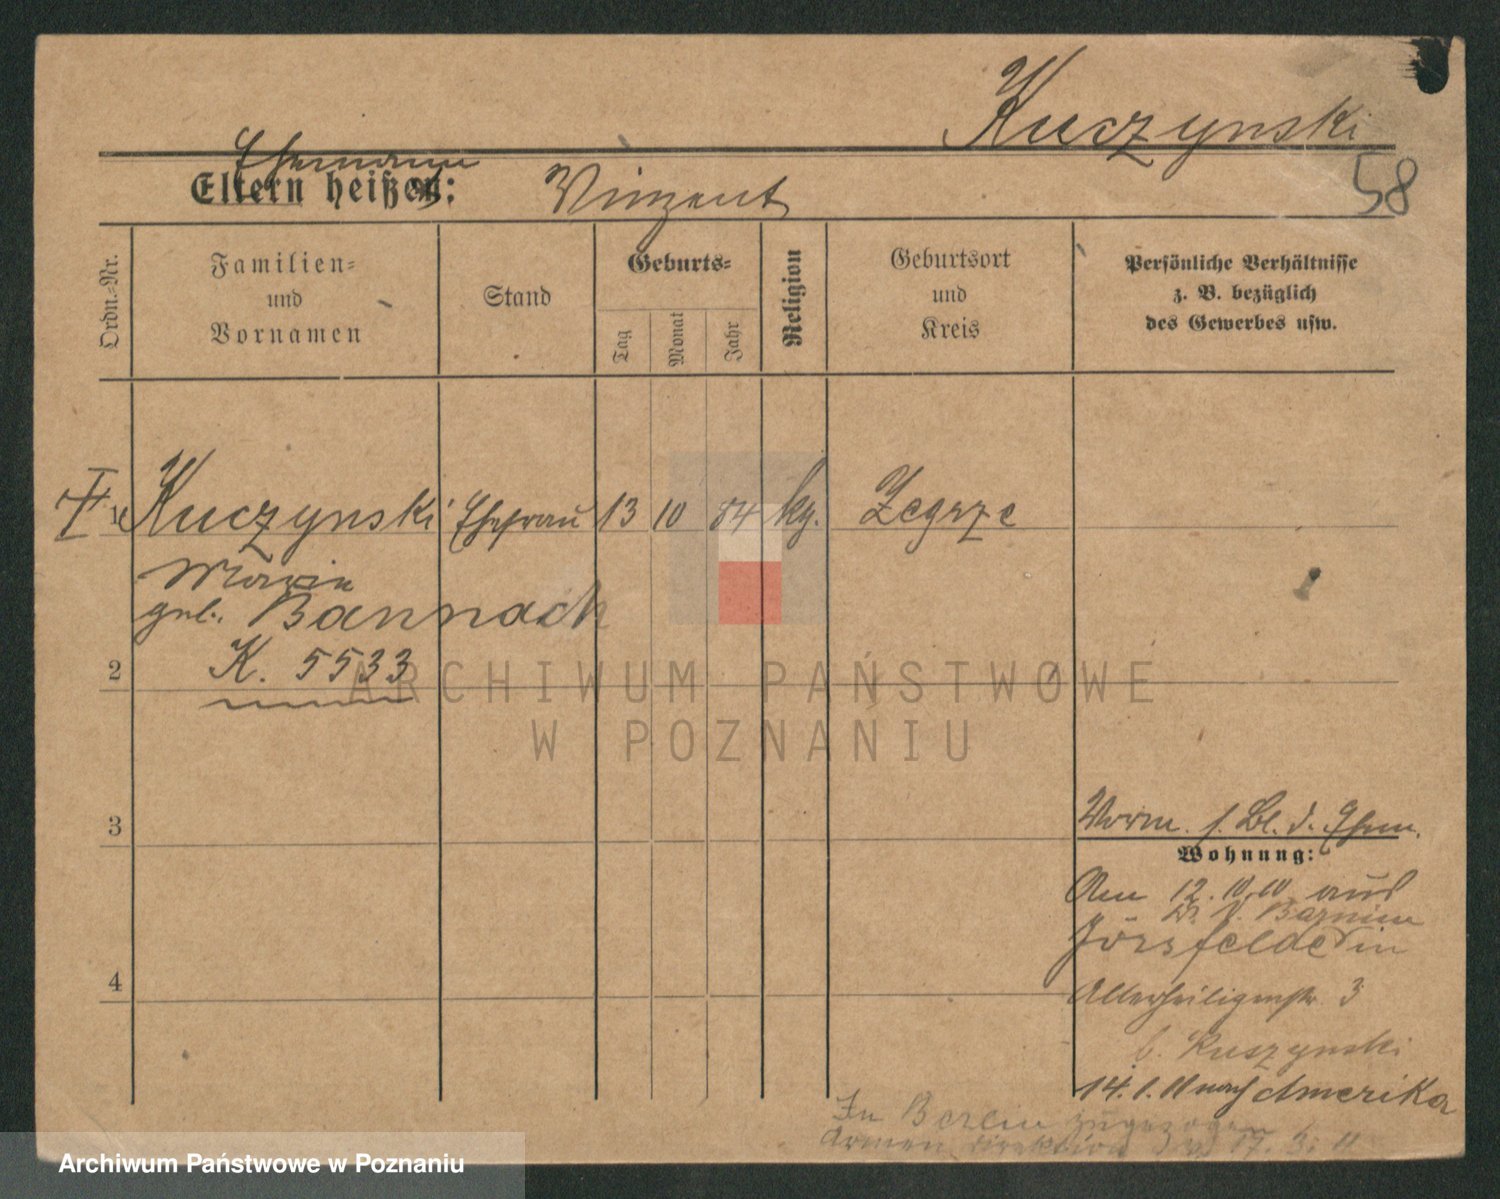 Kuczynski
58
Ehemann
Eltern heißen: Vinzent
Ordn.-Nr.
Familien-
und
Vornamen
Stand
Geburts-
Tag
Monat
Jahr
Religion
Geburtsort
und
Kreis
Persönliche Verhältnisse
z. B. bezüglich
des Gewerbes usw.
1 Kuczynski Ehefrau 13 10 84 kg. Zegrze
Maria
geb. Bannach
2 K. 5533
ARCHIWUM PAŃSTWOWE
W POZNANIU
3
Vorm. s. Bl. d. Ehem.
Wohnung:
Am 12.10.10 aus
Kr. N. Barnim
Jörsfelde in
4
Allerheiligenstr. 3
b. Kuszynski
14.1.11 nach Amerika
In Berlin zugezogen
Armen direktion 17. 3. 11
Archiwum Państwowe w Poznaniu